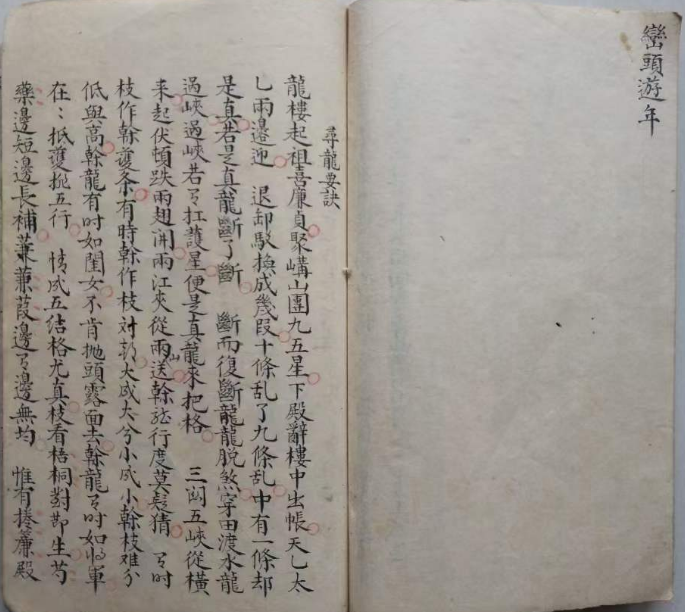 巒頭遊年
尋龍要訣
龍樓起祖喜廉貞聚講山團九五星下殿辭樓中出帳天乚太
乚兩邉迎 退卸駁換成幾段十條乱了九條乱中有一條却
是真若是真龍斷了斷 斷而復斷龍龍脫煞穿田渡水龍
過峽過峽若有扛護星便是真龍來把格 三關五峽從橫
来起伏頓跌兩翅開兩江夾從兩山送幹龍行度莫疑猜 有時
枝作幹護条有時幹作枝対大成大兮小成小幹枝难分
低與高幹龍有時如閨女不肯抛頭露面去幹龍有时如将軍
在：抵護抛五行 情成五結格尤真枝看梧桐對節生芍
藥邊短邊長補蒹葭邊有邊無均 惟有捲簾殿